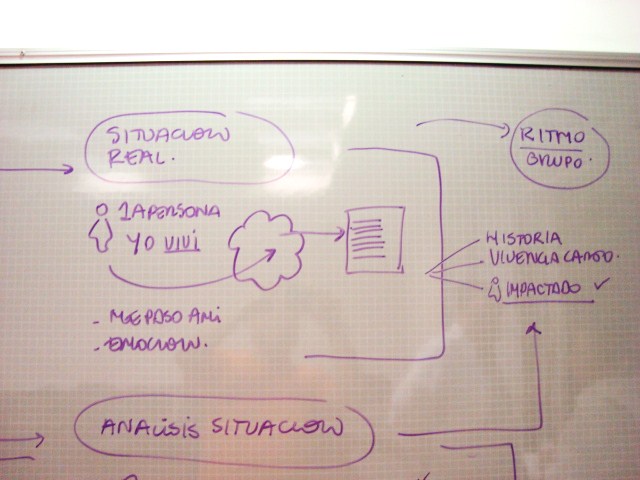 SITUACION
REAL.
1A PERSONA
YO VIVI
- ME PASO A MI
- EMOCION.
RITMO
GRUPO.
HISTORIA
- VIVENCIA
IMPACTADO ✓
ANALISIS SITUACION